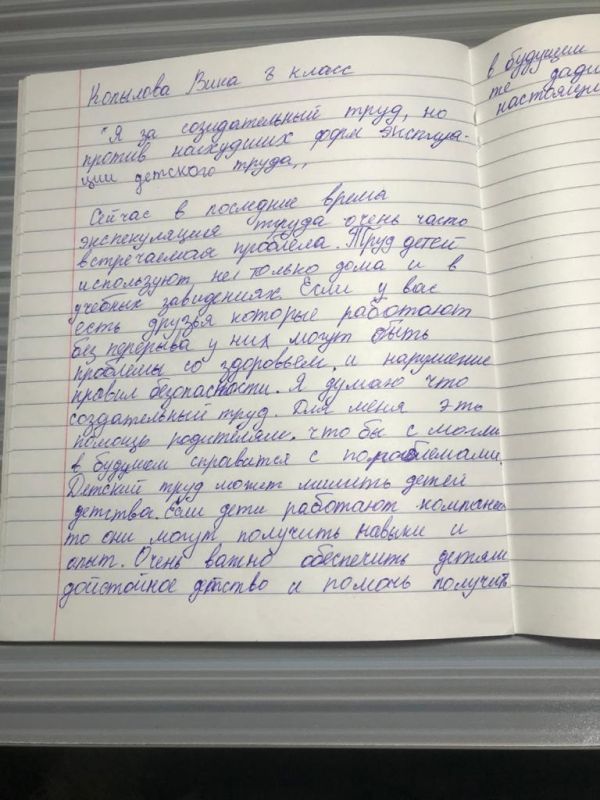 Копылова Вика 8 класс
"Я за созидательный труд, но
против наихудших форм эксплуа-
ции детского труда,,
Сейчас в последние время
экспекуляция труда очень часто
встречаемая проблела. Труд детей
используют не только дома и в
учебных завидениях. Если у вас
есть друзья которые работают
без перерыва у них могут быть
проблемы со здоровьем и нарушение
правил безопасности. Я думаю что
создательный труд. Для меня эть
помощь родителям. что бы с могли
в будущем справится с проблемами.
Детский труд может лишить детей
детства. Если дети работают
то они могут получить навыки и
опыт. Очень важно обеспечить детям
дойстойное детство и помочь получить
в будущем
те